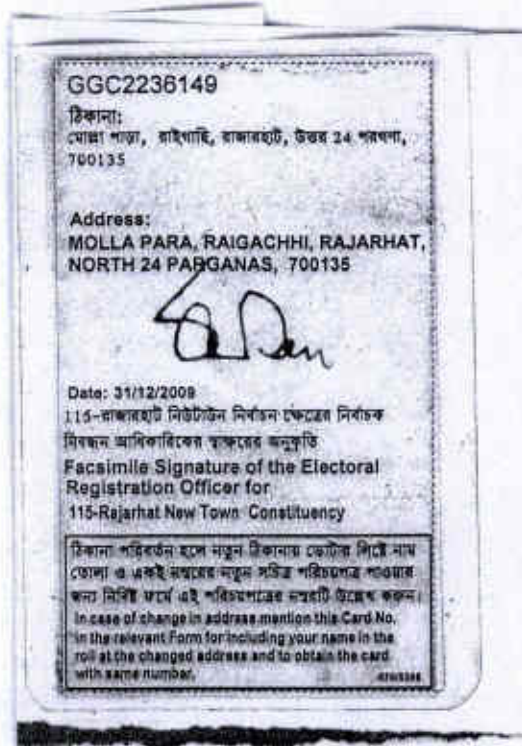 GGC2236149
ঠিকানা:
মোল্লা পাড়া, রাইগাছি, রাজারহাট, উত্তর 24 পরগণা,
700135
Address:
MOLLA PARA, RAIGACHHI, RAJARHAT,
NORTH 24 PARGANAS, 700135
Date: 31/12/2009
115-রাজারহাট নিউটাউন নির্বাচন ক্ষেত্রের নির্বাচক
নিবন্ধন আধিকারিকের স্বাক্ষরের অনুকৃতি
Facsimile Signature of the Electoral
Registration Officer for
115-Rajarhat New Town Constituency
ঠিকানা পরিবর্তন হলে নতুন ঠিকানায় ভোটার লিষ্টে নাম
তোলা ও একই নম্বরের নতুন সচিত্র পরিচয়পত্র পাওয়ার
জন্য নির্দিষ্ট ফর্মে এই পরিচয়পত্রের নম্বরটি উল্লেখ করুন।
In case of change in address mention this Card No.
in the relevant Form for including your name in the
roll at the changed address and to obtain the card
with same number.